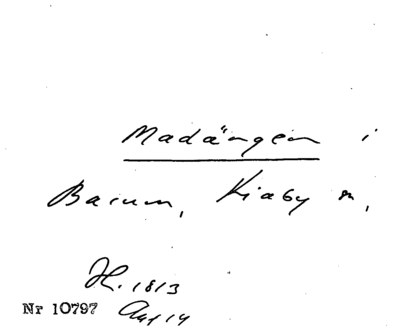 Madängen i
Barum, Kiaby sn,
H. 1813
Nr 10797 Akt 14